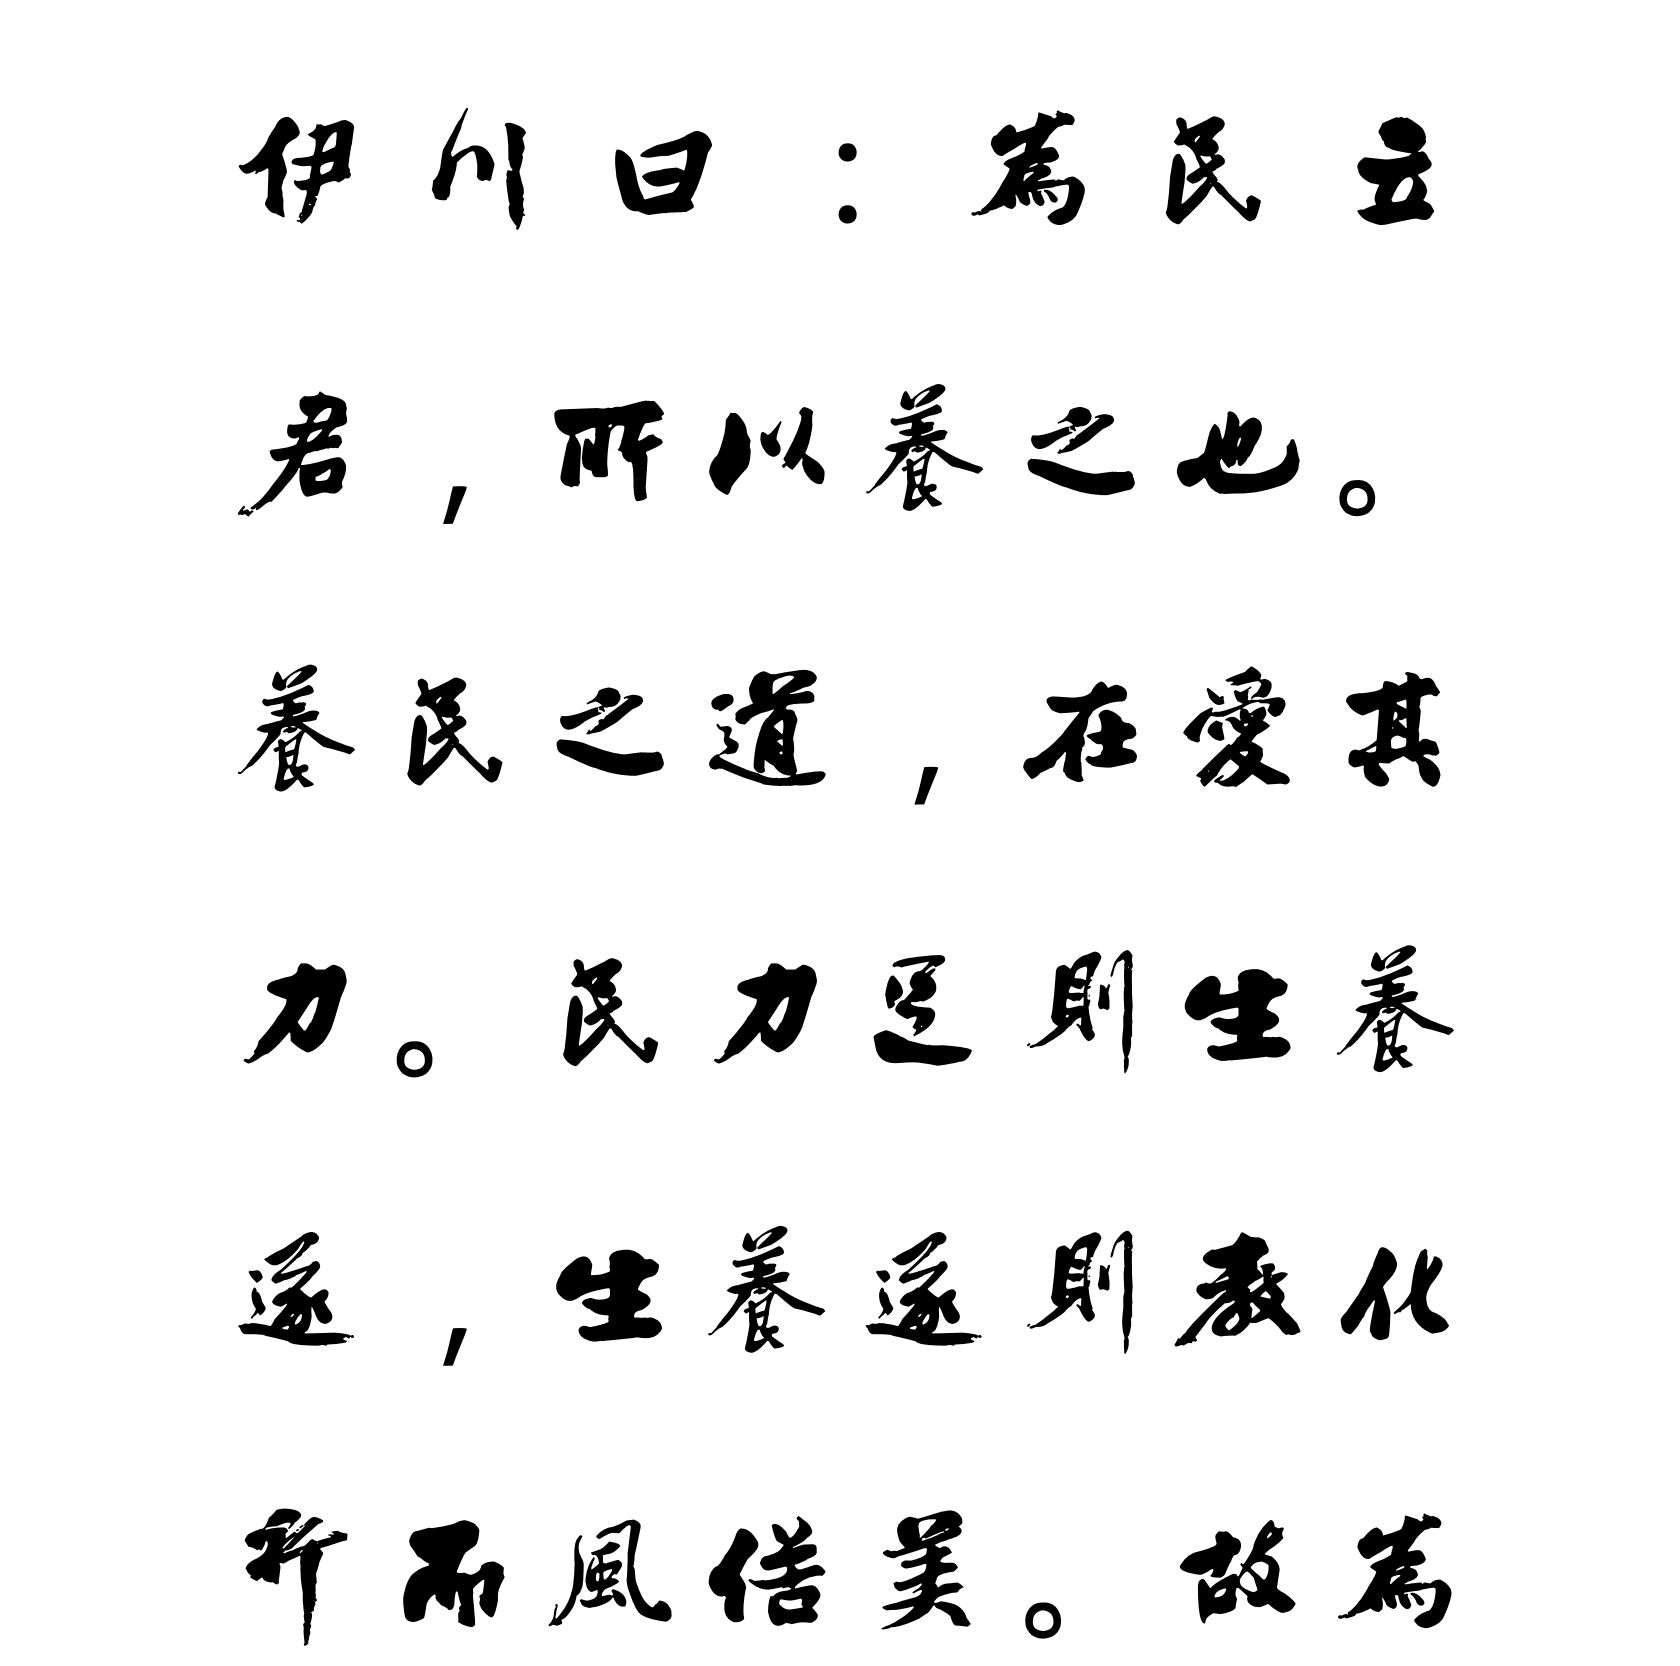 伊川曰：為民立
君，所以養之也。
養民之道，在愛其
力。民力足則生養
遂，生養遂則教化
行而風俗美。故為